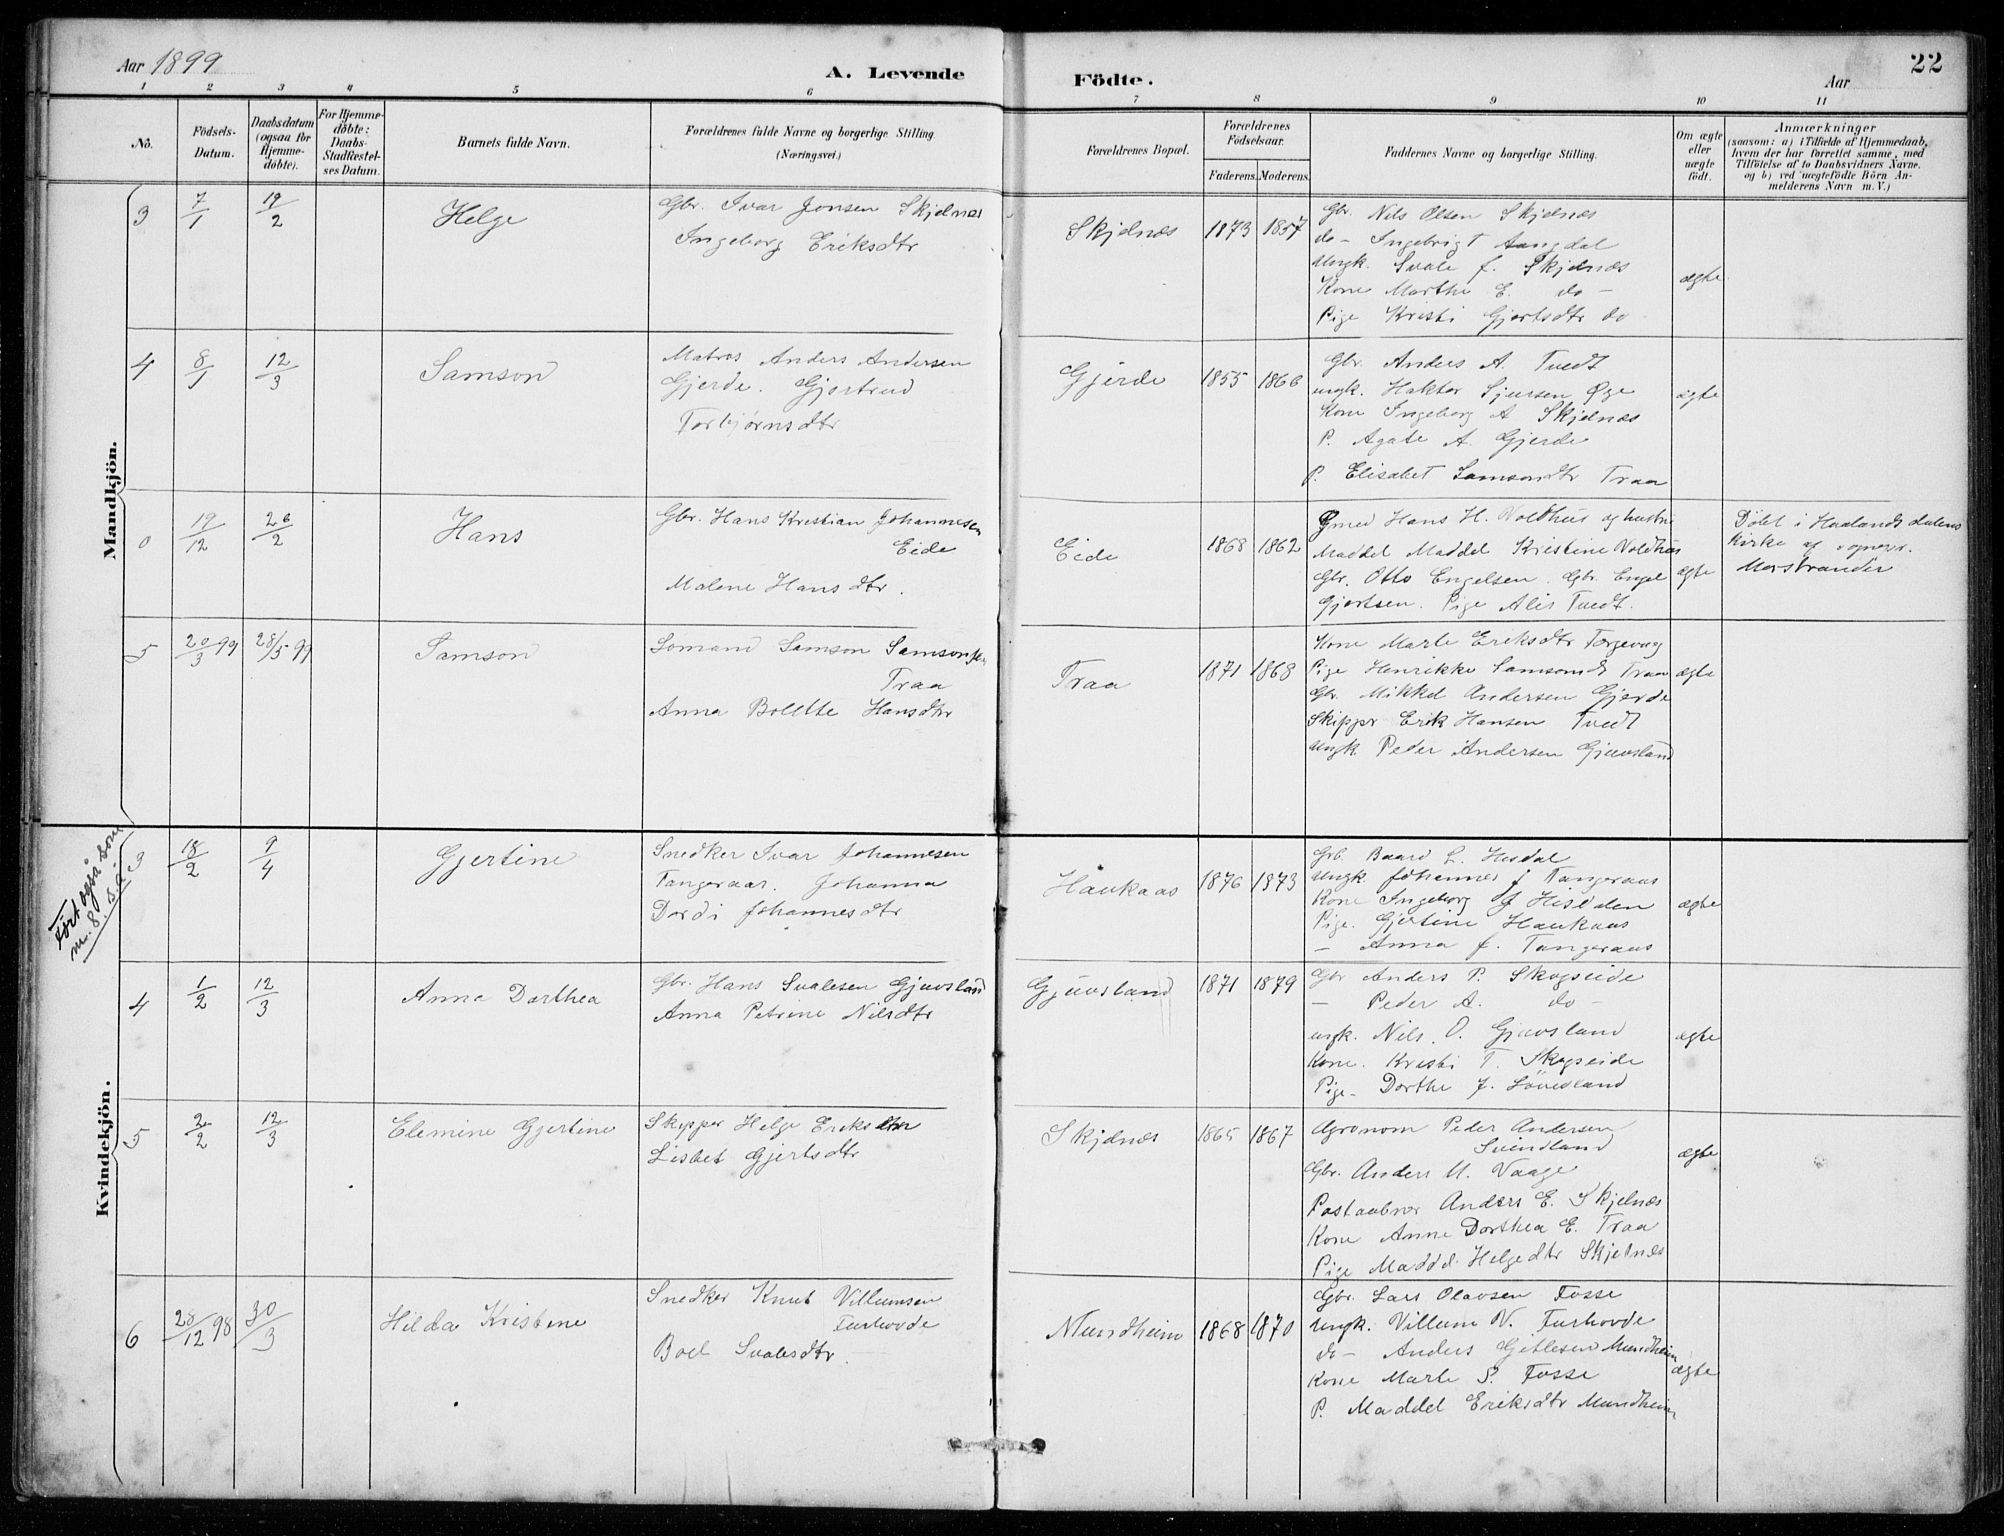 Aar 1899
A. Levende
Födte.
Aar
22
1 2 3 4 5 6 7 8 9 10 11
No.
Födsels-Datum.
Daabsdatum (ogsaa for Hjemme-döbte).
For Hjemme-döbte: Daabs-Stadfæstel-ses Datum.
Barnets fulde Navn.
Forældrenes fulde Navne og borgerlige Stilling.
(Næringsvei.)
Forældrenes Bopæl.
Forældrenes Födselsaar.
Faderens. Moderens.
Faddernes Navne og borgerlige Stilling.
Om ægte eller uægte födt.
Anmærkninger
(saasom: a) i Tilfælde af Hjemmedaab,
hvem der har forrettet samme, med
Tilföielse af to Daabsvidners Navne.
og b) ved uægtefödte Börn An-
melderens Navn m. V.)
Mandkjön.
3 7/1 19/2 Helge
Gbr. Ivar Jonsen Skjelnæs
Ingeborg Eriksdtr
Skjelnæs 1873 1857
Gbr. Nils Olsen Skjelnæs
do - Ingebrigt Aangdal
Ungk. Svale J. Skjelnæs
Kone Marthe E. do -
Pige Kristi Gjertsdtr do
ægte
4 8/1 12/3 Samson
Matros Anders Andersen
Gjerde. Gjertrud
Torbjørnsdtr
Gjerde 1855 1866
Gbr. Anders A. Tvedt
ungk. Haktor Sjursen Øye
Kone Ingeborg A Skjelnæs
P. Agate A. Gjerde
P. Elisabet Samsondtr Traa
ægte
0 19/12 26/2 Hans
Gbr. Hans Kristian Johannesen
Eide
Malene Hansdtr.
Eide 1868 1862
Hans H. Noldhus og hustru
Maddel Maddel Kristine Noldhus
Gbr. Otto Engelsen. Gbr. Engel
Gjertsen. Pige Alis Tvedt.
ægte
Döbt i Haalandsdalens
Kirke af sognepr.
Morstrander
5 20/3 99 28/5 99 Samson
Sömand Samson Samsonsen
Traa
Anna Bolette Hansdtr
Traa 1871 1868
Kone Marte Eriksdtr Torgevag
Pige Henrikke Samsonsd Traa
Gbr. Mikkel Andersen Gjerde
Skippr Erik Hansen Tvedt
Ungk Peder Andersen Gjuvsland
ægte
Ført også som
m. 8. s.d.
Kvindekjön.
3 18/2 9/4 Gjertine
Snedker Ivar Johannesen
Tangeraas. Johanna
Dordi Johannesdtr
Haukaas 1876 1873
Gbr. Baard L. Husdal
Ungk. Johannes J Tangeraas
Kone Ingeborg J Hisdalen
Pige. Gjertine Haukaas
- Anna J. Tangeraas
ægte
4 1/2 12/3 Anna Dorthea
Gbr. Hans Svalesen Gjuvsland
Anna Petrine Nilsdtr
Gjuvsland 1871 1879
Gbr Anders P. Skogseide
- Peder A. do -
ungk. Nils. O. Gjuvsland
Kone. Kristi T. Skogseide
Pige. Dorthe J. Lönesland
ægte
5 2/2 12/3 Elemine Gjertine
Skipper Helge Eriksen
Lisbet Gjertsdtr
Skjelnæs 1865 1867
Agronom Peder Andersen
Svindland
Gbr. Anders M. Vaage
Postaabner Anders E. Skjelnæs
Kone Anne Dorthea E. Traa
Pige Maddel Helgedtr Skjelnæs
ægte
6 28/12 98 30/3 Hilda Kristine
Snedker Knut Villumsen
Furhovde
Boel Svalesdtr.
Mundheim 1868 1870
Gbr. Lars Olavsen Fosse
Ungk. Villum V. Furhovde
do - Anders Gitlesen Mundheim
Kone Marte P. Fosse
P. Maddel Eriksdtr Mundheim
ægte